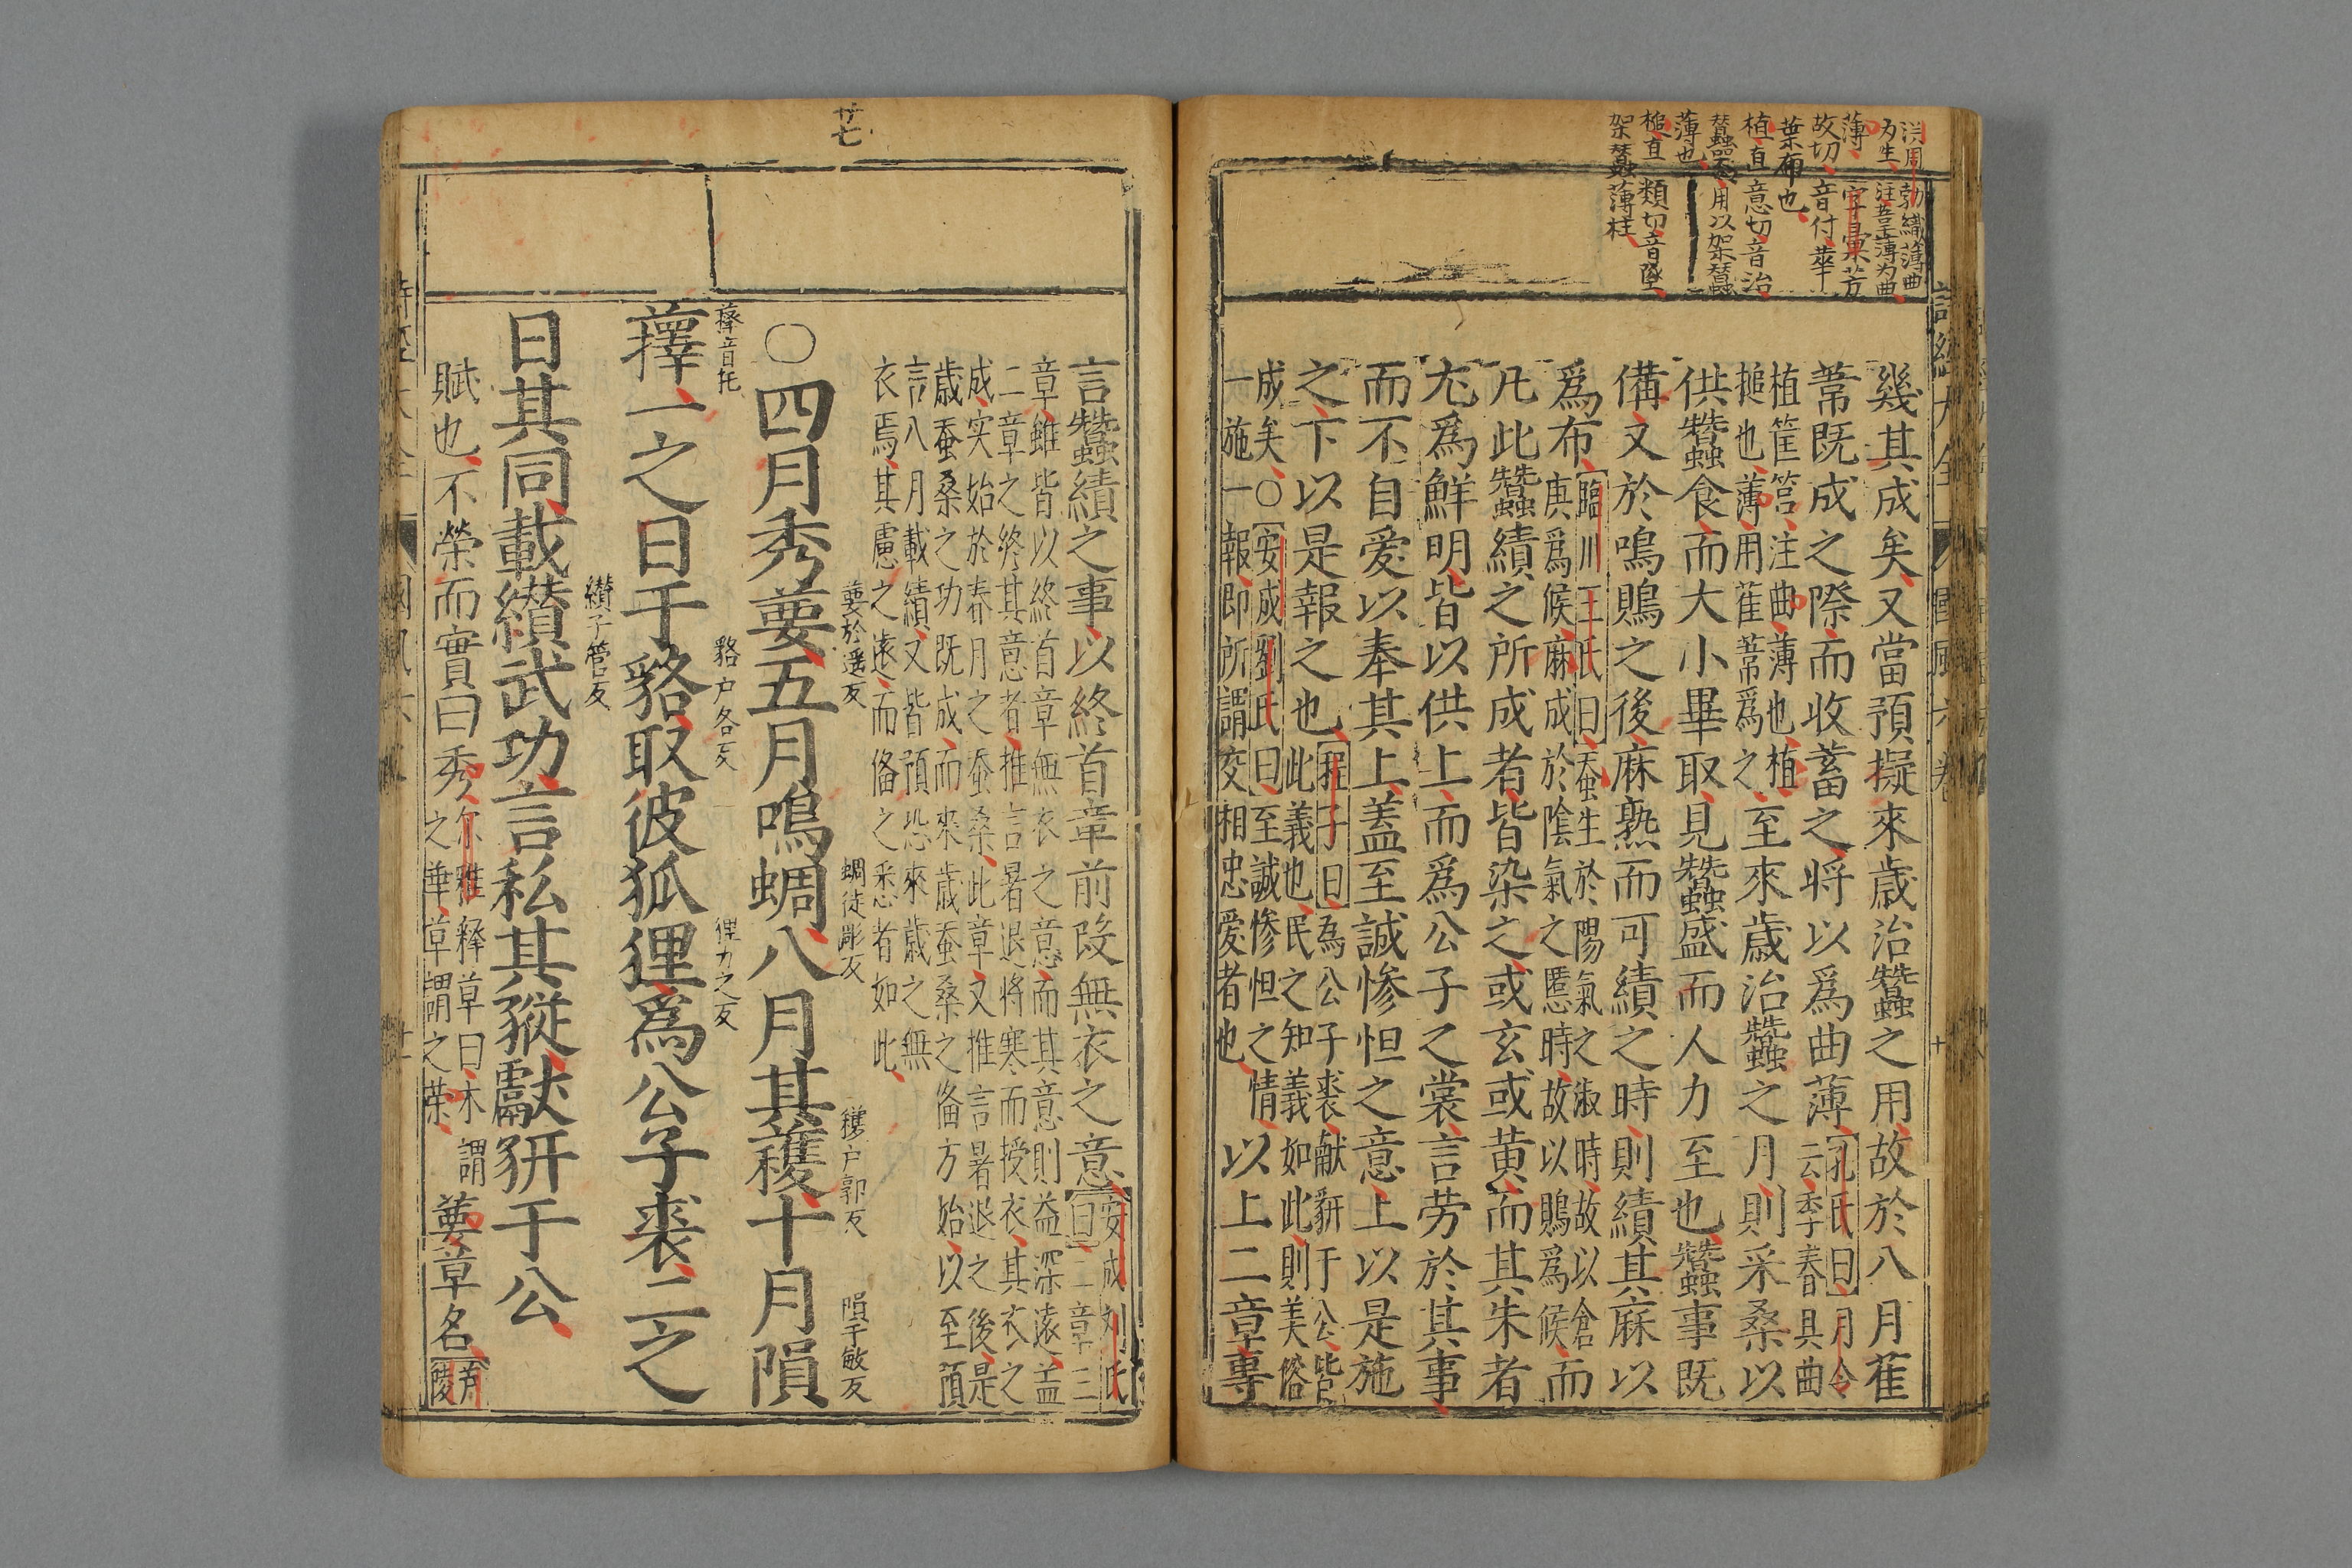 漢周勃織薄曲
为生注葦薄为曲
薄字彙芳
故切音付華
葉布也
植直意切音治
蠶案用以架蠶
薄也
槌直類切音墜
架蠶薄柱
幾其成矣又當預擬來歲治蠶之用故於八月萑
葦既成之際而收蓄之將以爲曲薄孔氏曰月令
云季春具曲
植筐筥注曲薄也植
槌也薄用萑葦爲之至來歲治蠶之月則采桑以
供蠶食而大小畢取見蠶盛而人力至也蠶事既
備又於鳴鵙之後麻熟而可績之時則績其麻以
爲布臨川王氏曰蚕生於陽氣之淑時故以倉
庚爲候麻成於陰氣之慝時故以鵙爲候而
凡此蠶績之所成者皆染之或玄或黃而其朱者
尤爲鮮明皆以供上而爲公子之裳言勞於其事
而不自愛以奉其上蓋至誠慘怛之意上以是施
之下以是報之也程子曰為公子裘献豜于公皆
此義也民之知義如此則美俗
成矣○安成劉氏曰至誠慘怛之情
一施一報即所謂交相忠愛者也以上二章專
言蠶績之事以終首章前段無衣之意安成刘氏
曰二章三
章雖皆以終首章無衣之意而其意則益深遠盖
二章之終其意者推言暑退將寒而授衣其衣之
成实始於春月之蚕桑此章又推言暑退之後是
歲蚕桑之功既成而來歲蚕桑之俻方始以至預
言八月載績又皆預恐來歲之無
衣焉其慮之遠而俻之悉者如此
廿七
葽於遥反
蜩徒彫反
穫户郭反
隕于敏反
○四月秀葽五月鳴蜩八月其穫十月隕
蘀音托
貉户各反
狸力之反
蘀一之日于貉取彼狐狸爲公子裘二之
纘子管反
日其同載纘武功言私其豵獻豜于公
賦也不榮而實曰秀尔雅釋草曰木謂
之華草謂之荣葽草名芦
陵